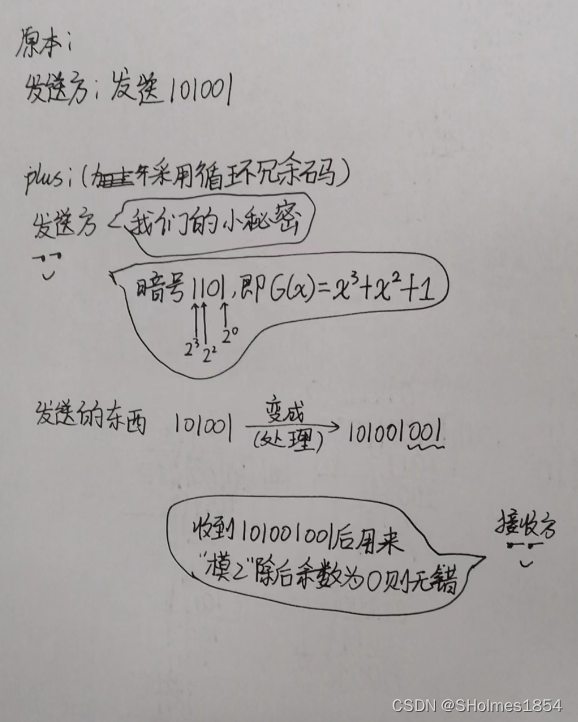 原本:
发送方: 发送 101001
plus:(采用循环冗余码)
发送方
我们的小秘密
暗号1101,即G(x)=x³+x²+1
2³ 2² 2⁰
发送的东西 101001 变成 (处理) 101001001
收到101001001后用来
"模2"除后余数为0则无错
接收方
CSDN @SHolmes1854